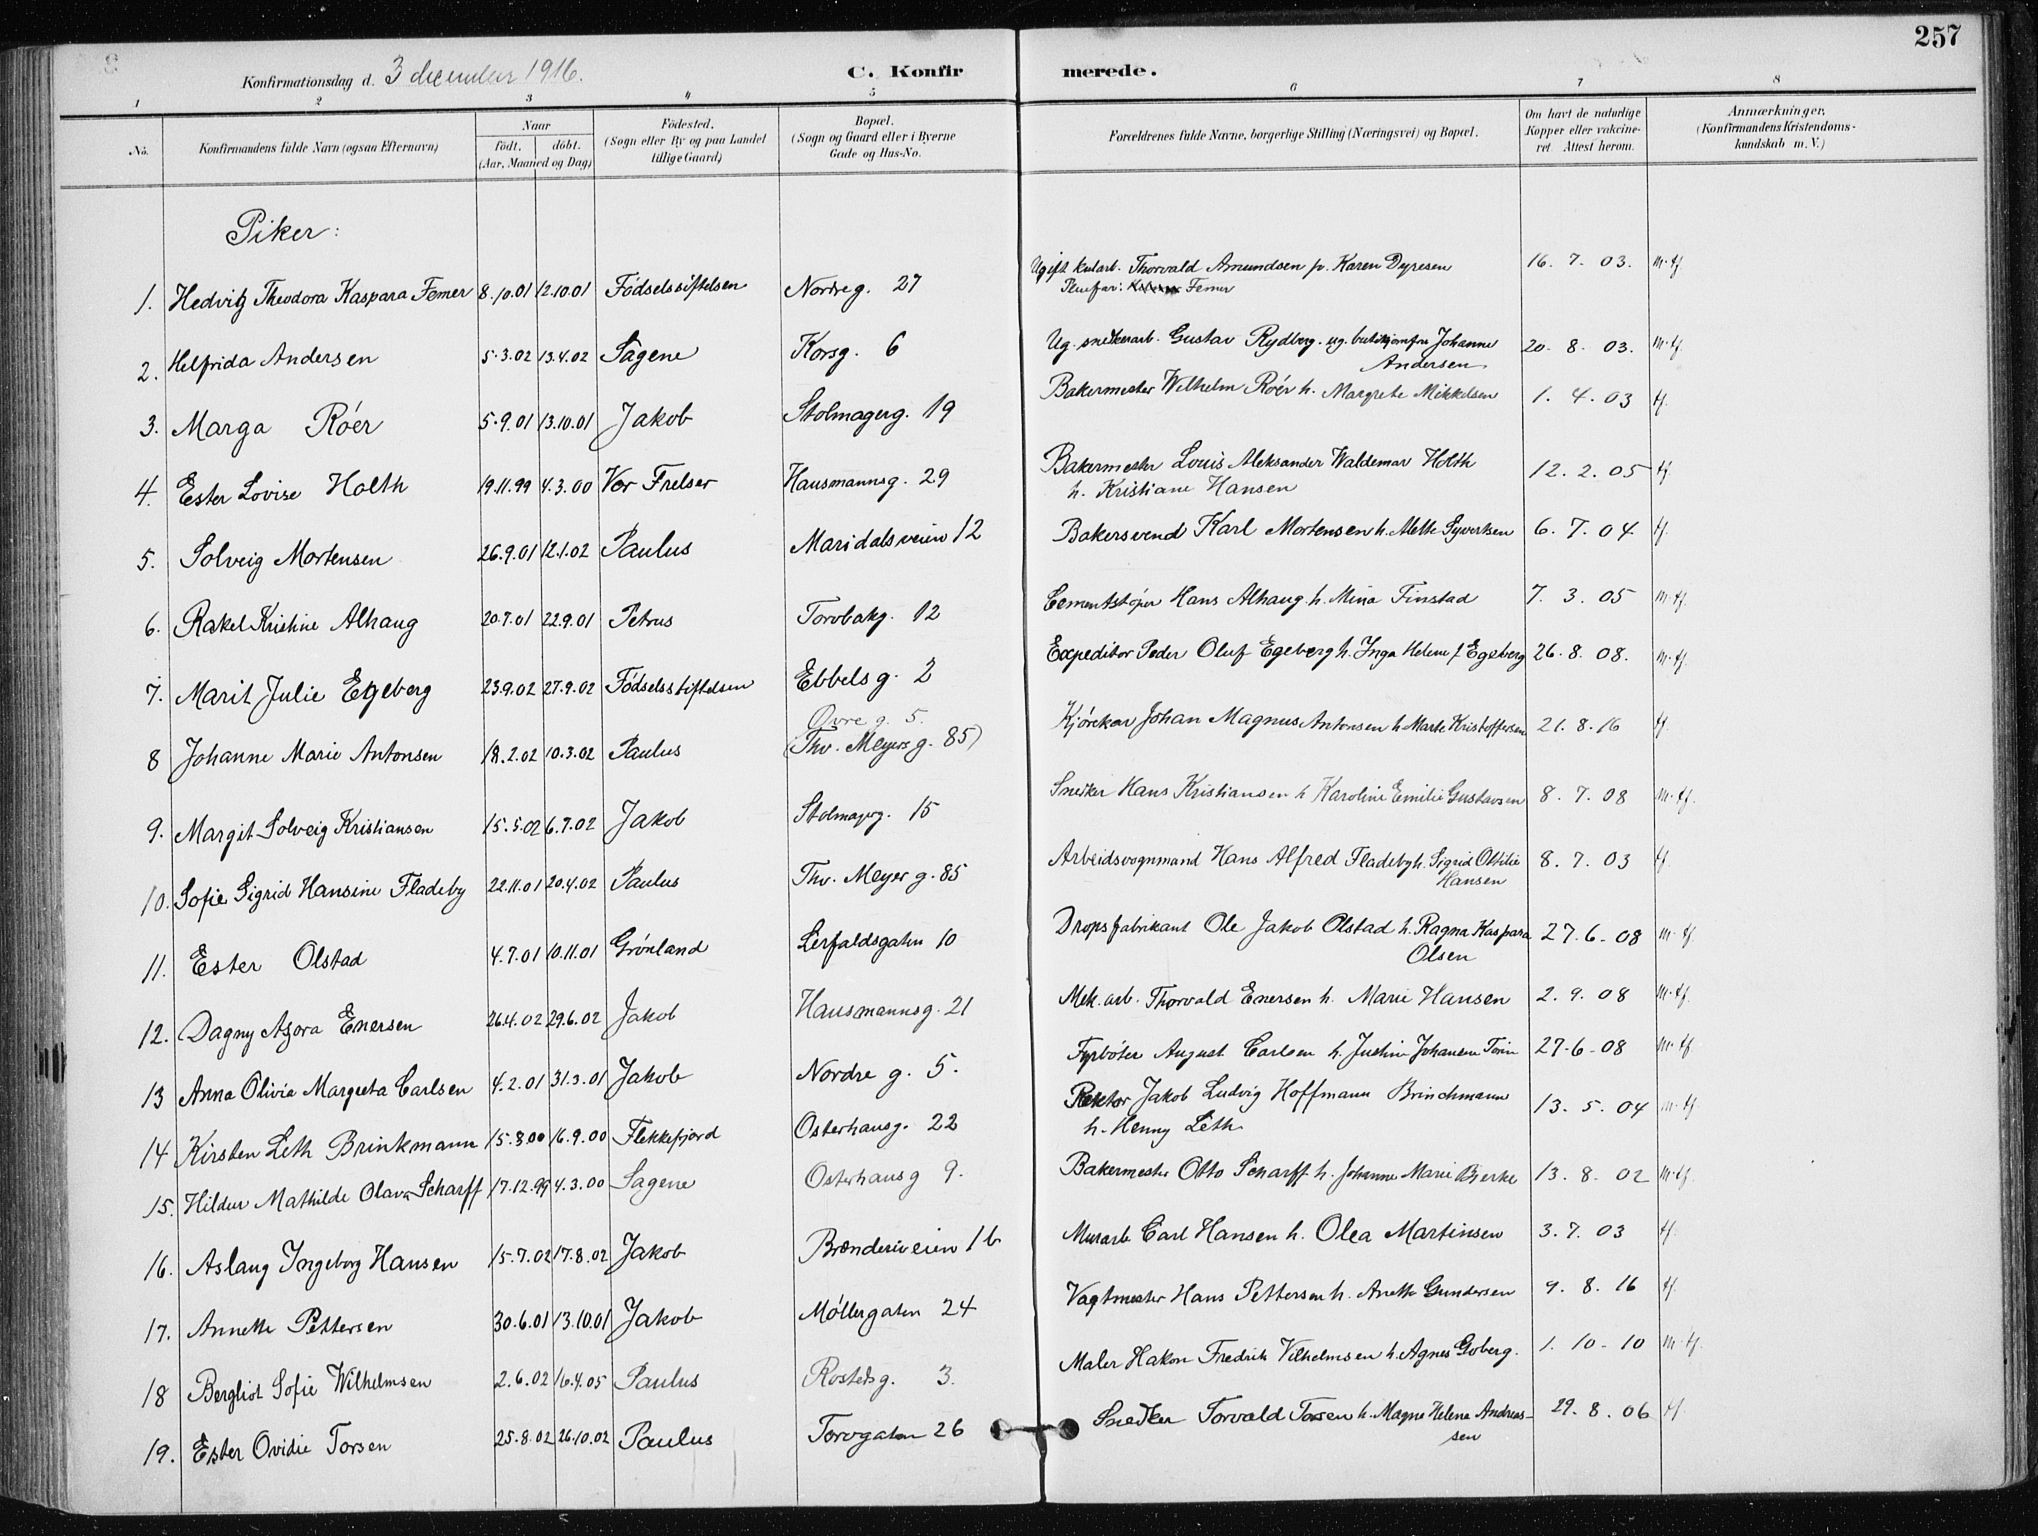 257
Konfirmationsdag d. 3 december 1916.
C. Konfirmerede.
1 2 3 4 5 6 7 8
No. Konfirmandens fulde Navn (ogsaa Efternavn) Naar født. døbt. (Aar, Maaned og Dag) Fødested. (Sogn eller By og paa Landet tillige Gaard) Bopæl. (Sogn og Gaard eller i Byerne Gade og Hus-No. Forældrenes fulde Navne, borgerlige Stilling (Næringsvei) og Bopæl. Om havt de naturlige Kopper eller vakcineret. Attest herom. Anmærkninger. (Konfirmandens Kristendomskundskab m. V.)
Piker:
1. Hedvig Theodora Kaspara Femer 8.10.01 12.10.01 Fødselsstiftelsen Nordreg. 27 Ugift kularb. Thorvald Amundsen p. Karen Dyresen 16. 7. 03. m. tf.
Pleiefar: Femer
2. Helfrida Andersen 5.3.02 13.4.02 Sagene Korsg. 6 Ug. snedkerarb. Gustav Rydberg. ug. butikjomfru Johanne 20. 8. 03. m. tf.
Andersen
3. Marga Róer 5.9.01 13.10.01 Jakob Stolmagerg. 19 Bakermester Wilhelm Róer h. Margrete Mikkelsen 1. 4. 03 tf.
4. Ester Lovise Holth 19.11.99 4.3.00 Vor Frelser Hausmannsg. 29 Bakermester Louis Aleksander Waldemar Holth 12. 2. 05 tf
h. Kristiane Hansen
5. Solveig Mortensen 26.9.01 12.1.02 Paulus Maridalsveien 12 Bakersvend Karl Mortensen h. Mette Syvertsen 6. 7. 04. tf.
6. Rakel Kristine Alhaug 20.7.01 22.9.01 Petrus Torvbakg. 12 Cementstøper Hans Alhaug h. Mina Finstad 7. 3. 05 m. tf.
7. Marit Julie Egeberg 23.9.02 27.9.02 Fødselsstiftelsen Ebbelsg. 2 Expeditør Peder Oluf Egeberg h. Inga Helene f Egeberg 26. 8. 08. m. tf.
Øvre g. 5.
8 Johanne Marie Antonsen 18.2.02 10.3.02 Paulus (Thv. Meyers g. 85) Kjørekar Johan Magnus Antonsen h Marte Kristoffersen 21. 8. 16 tf.
9. Margit Solveig Kristiansen 15.5.02 6.7.02 Jakob Stolmagerg. 15 Snedker Hans Kristiansen h Karoline Emilie Gustavsen 8. 7. 08 m. tf.
10. Sofie Sigrid Hansine Fladeby 22.11.01 20.4.02 Paulus Thv. Meyer g. 85 Arbeidsvognmand Hans Alfred Fladeby h. Sigrid Ottilie 8. 7. 03 tf.
Hansen
11. Ester Olstad 4.7.01 10.11.01 Grønland Lerfaldsgaten 10 Dropsfabrikant Ole Jakob Olstad h. Ragna Kaspara 27. 6. 08 m. tf.
Olsen
12. Dagny Azora Enersen 26.4.02 29.6.02 Jakob Hausmannsg. 21 Mek. arb. Thorvald Enersen h. Marie Hansen 2. 9. 08 m. tf.
13 Anna Olivia Margreta Carlsen 4.2.01 31.3.01 Jakob Nordre g. 5. Fyrbøter August Carlsen h. Justine Johansen 27. 6. 08 m. tf.
14 Kirsten Leth Brinkmann 15.8.00 16.9.00 Flekkefjord Osterhausg. 22 Rektor Jakob Ludvig Hoffmann Brinchmann 13. 5. 04 m. tf.
h. Henny Leth
15. Hildur Mathilde Olava Scharff 17.12.99 4.3.00 Sagene Osterhausg 9. Bakermester Otto Scharff h. Johanne Marie Bjerke 13. 8. 02 m. tf.
16. Aslaug Ingeborg Hansen 15.7.02 17.8.02 Jakob Brænderiveien 1b Murarb. Carl Hansen h. Olea Martinsen 3. 7. 03 tf.
17. Annette Pettersen 30.6.01 13.10.01 Jakob Møllergaten 24 Vagtmester Hans Pettersen h. Anette Gundersen 9. 8. 16 tf.
18 Bergliot Sofie Wilhelmsen 2.6.02 16.4.05 Paulus Rostedsg. 3. Maler Hakon Fredrik Vilhelmsen h. Agnes Goberg. 1. 10. 10 m. tf.
19. Ester Ovidie Torsen 25.8.02 26.10.02 Paulus Torvgaten 26 Snedker Torvald Torsen h. Magna Helene Andreas- 29. 8. 06 tf.
sen